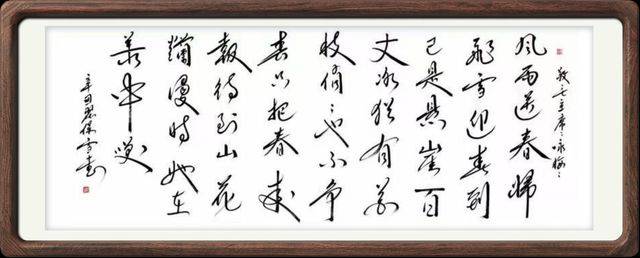 毛主席咏梅
风雨送春归
飞雪迎春到
已是悬崖百
丈冰犹有花
枝俏俏也不争
春只把春来
报待到山花
烂漫时她在
丛中笑
辛丑